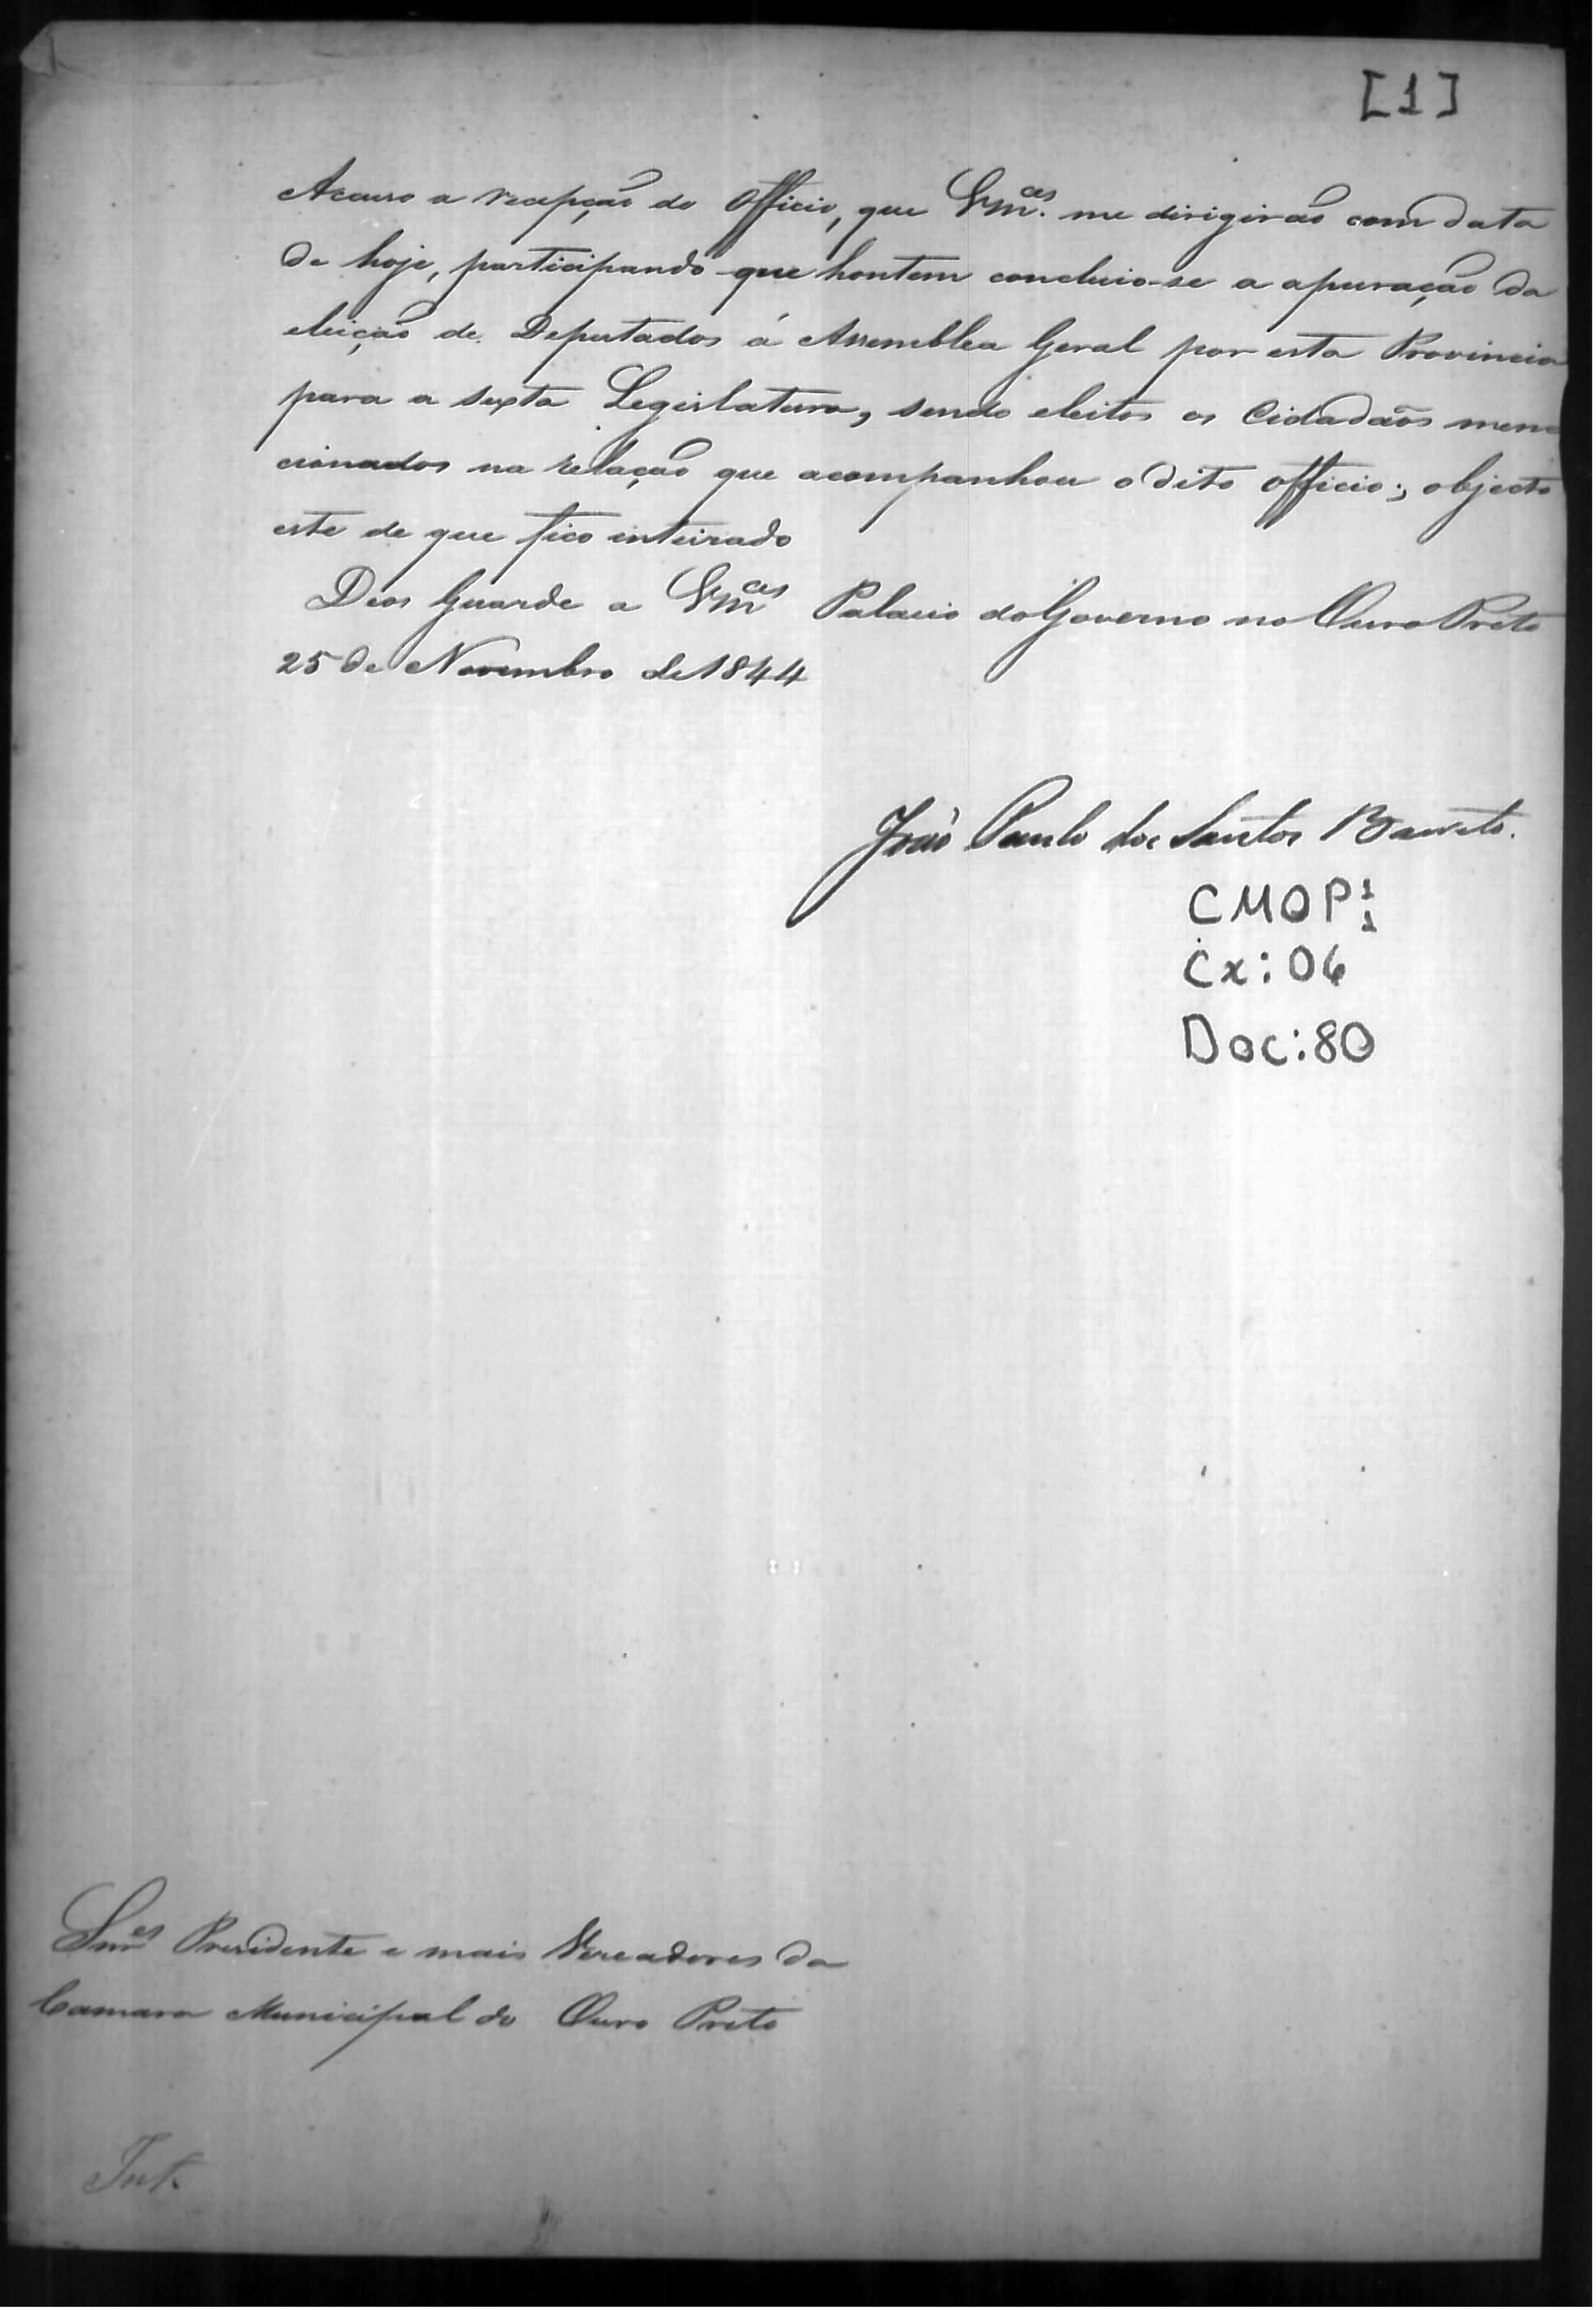 [1]
Accuso a recepção do Officio, que Vm.ces me dirigirão com data
de hoje, participando que hontem concluio-se a apuração da
eleição de Deputados á Assemblea Geral por esta Provincia
para a sexta Legislatura, sendo eleitos os Cidadãos men
cionados na relação que acompanhou o dito officio; objecto
este de que fico inteirado
Deos Guarde a Vmces Palacio do Governo no Ouro Preto
25 de Novembro de 1844
João Paulo dos Santos Barreto.
CMOP: 1
1
Cx: 06
Doc: 80
Snres Presidente e mais Vereadores da
Camara Municipal do Ouro Preto
Int.